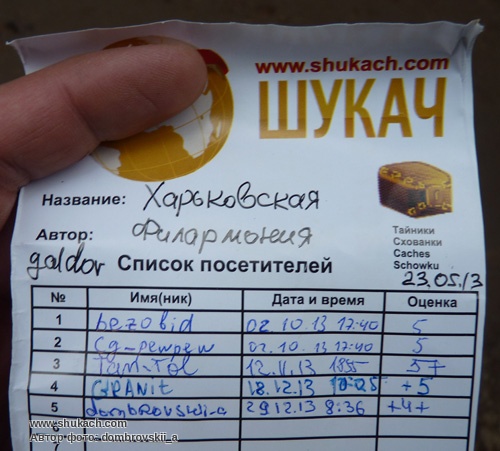 www.shukach.com
ШУКАЧ
Название: Харьковская
Автор: Филармония
Тайники
Схованки
Caches
Schowku
goldor Список посетителей
23.05.13
№ Имя(ник) Дата и время Оценка
1 bezobid 02.10.13 17:40 5
2 02.10.13 17:40 5
3 1855 5+
4 GRANIT 18.12.13 +5
5 dombrovskii_a 29.12.13 8:36 +4+
6
www.shukach.com
Автор фото: dombrovskii_a